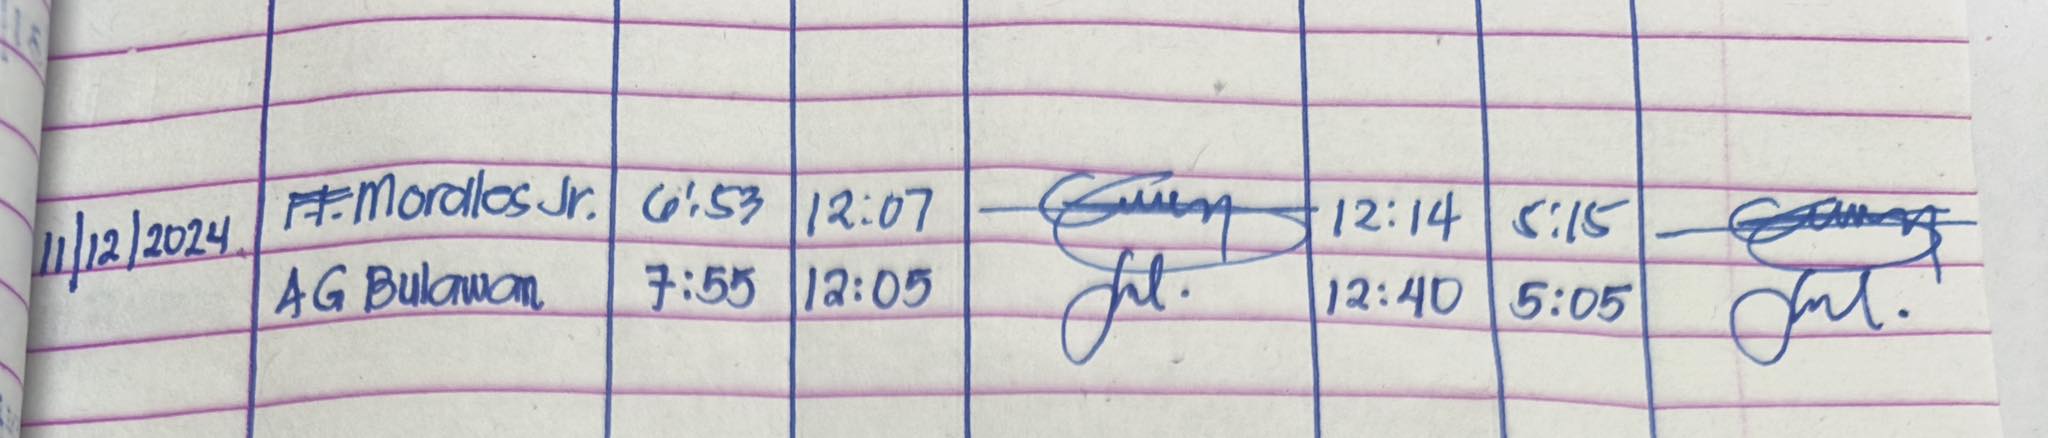 F. Morales Jr. 6:53 12:07 12:14 5:15
11/12/2024
AG Bulawan 7:55 12:05 12:40 5:05